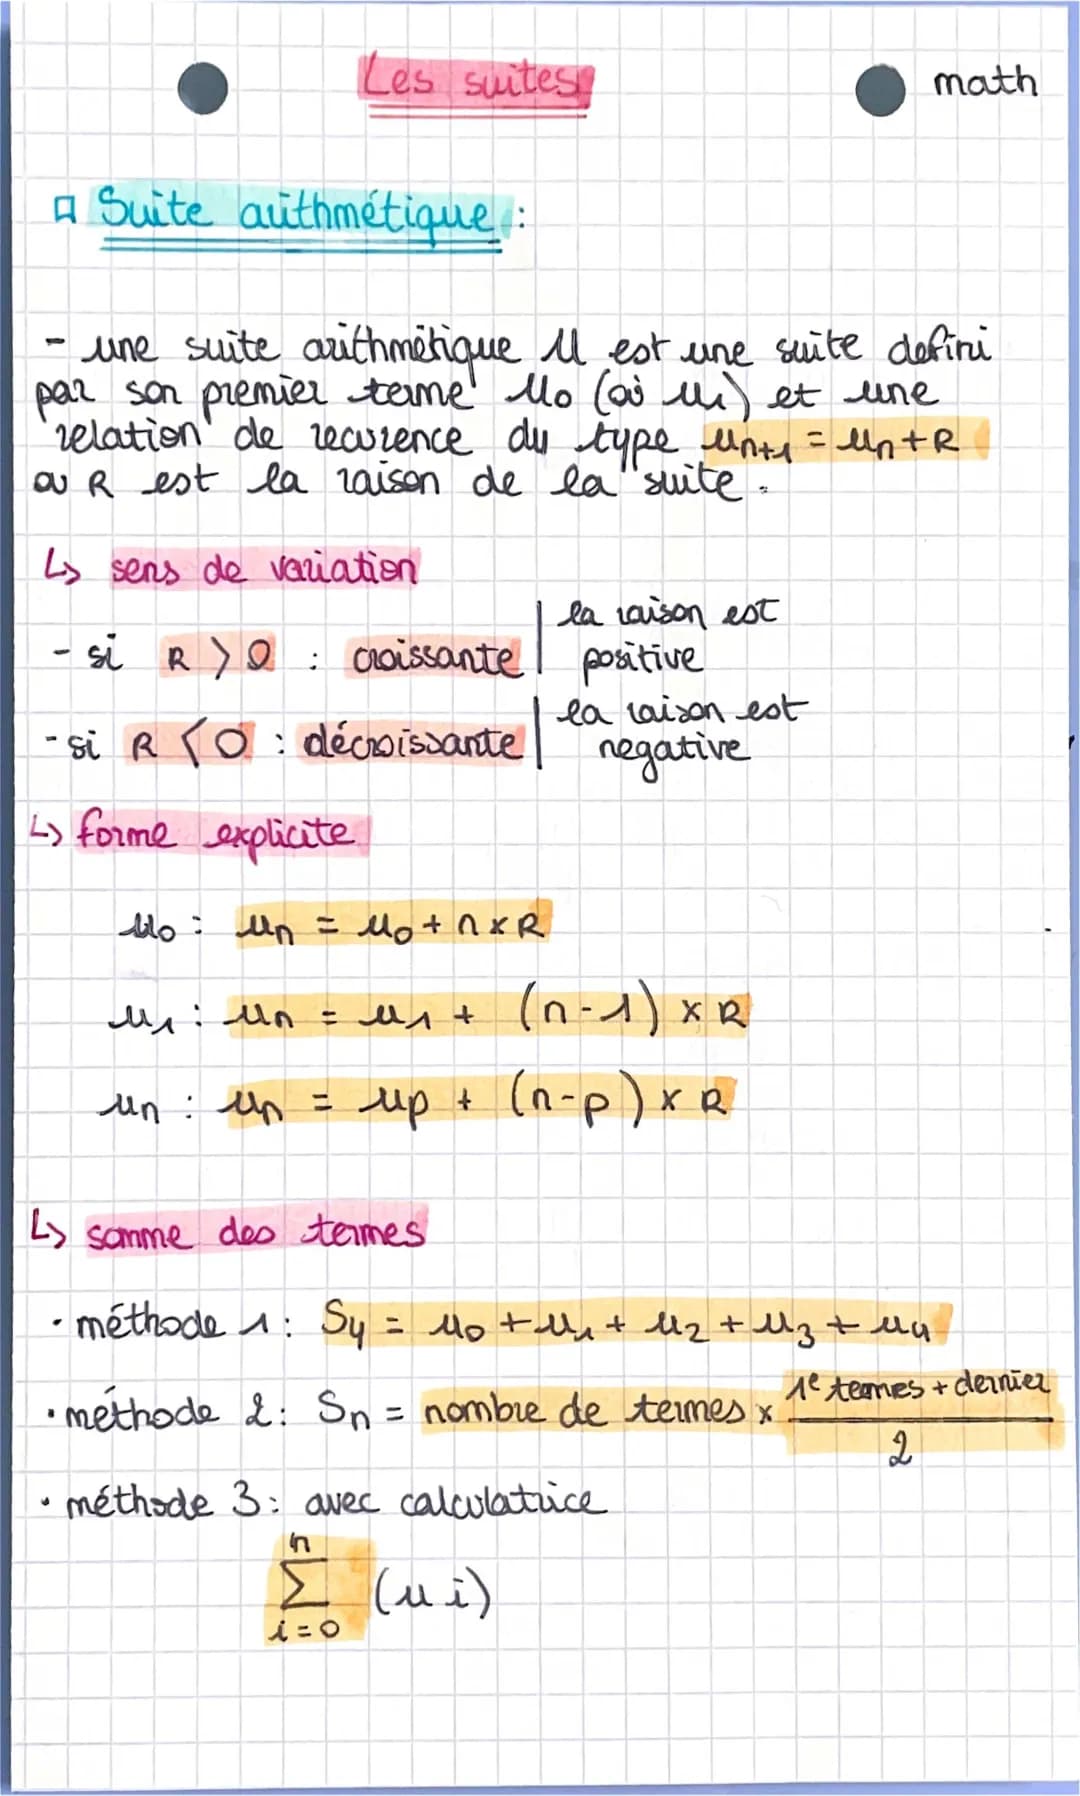 Les suites
math
Suite arithmétique :
- une suite arithmétique U est une suite defini
par son premier terme U0 (où U1) et une
relation de recurence du type Un+1 = Un + R
ou R est la raison de la suite.
↳ sens de variation
- si R > 0 : croissante | la raison est
positive
- si R < 0 : décroissante | la raison est
negative
↳ forme explicite
U0 : Un = U0 + n × R
U1 : Un = U1 + (n-1) × R
Un : Un = Up + (n-p) × R
↳ somme des termes
• méthode 1 : S4 = U0 + U1 + U2 + U3 + U4
• méthode 2 : Sn = nombre de termes × 1e termes + dernier
2
• méthode 3 : avec calculatrice
n
Σ (u i)
i = 0